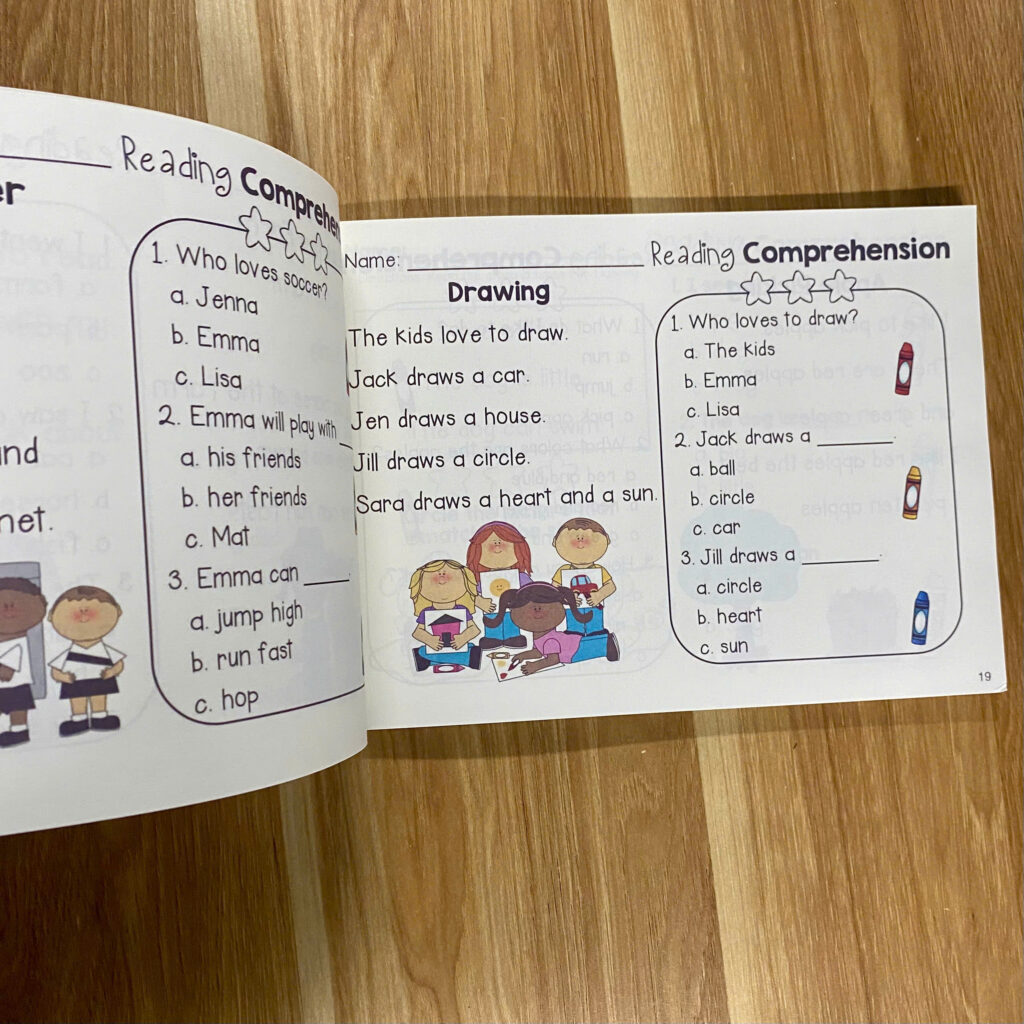 Reading Comprehen
er
1. Who loves soccer?
a. Jenna
b. Emma
c. Lisa
2. Emma will play with
a. his friends
b. her friends
c. Mat
3. Emma can ____.
a. jump high
b. run fast
c. hop
nd
net.
Name: ____________________ Reading Comprehension
Drawing
The kids love to draw.
Jack draws a car.
Jen draws a house.
Jill draws a circle.
Sara draws a heart and a sun.
1. Who loves to draw?
a. The kids
b. Emma
c. Lisa
2. Jack draws a ________.
a. ball
b. circle
c. car
3. Jill draws a ________.
a. circle
b. heart
c. sun
19